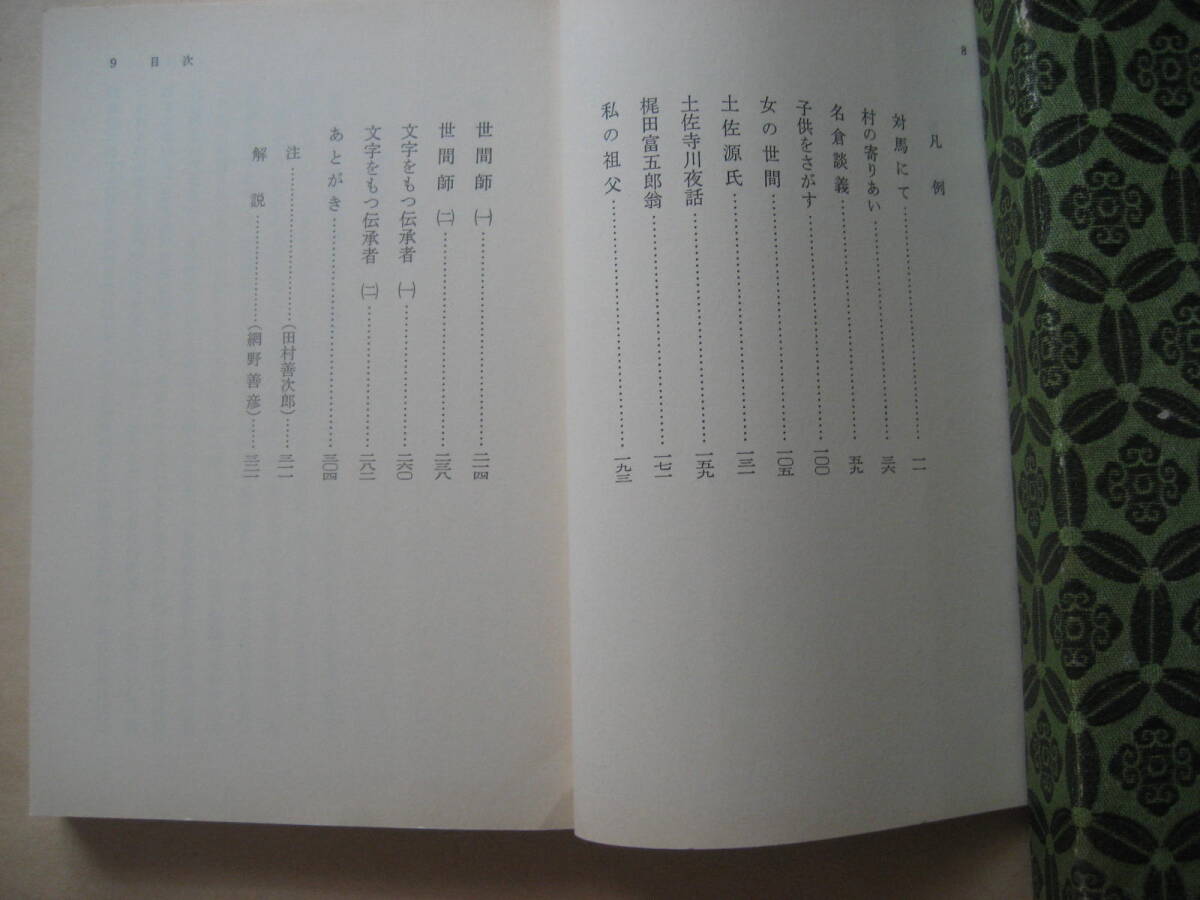 8
凡例
対馬にて……………………一一
村の寄りあい……………………三六
名倉談義……………………五九
子供をさがす……………………一〇〇
女の世間……………………一〇五
土佐源氏……………………一三一
土佐寺川夜話……………………一五九
梶田富五郎翁……………………一七一
私の祖父……………………一九三
9 目次
世間師 ㈠……………………二一四
世間師 ㈡……………………二三八
文字をもつ伝承者 ㈠……………………二六〇
文字をもつ伝承者 ㈡……………………二八二
あとがき……………………三〇四
注……………………(田村善次郎)……三一一
解説……………………(網野善彦)……三二一